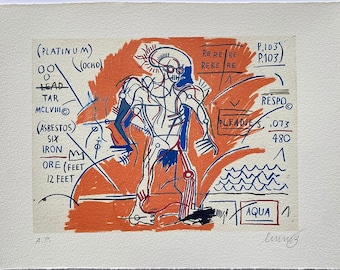 (PLATINUM)
(OCHO)
LEAD
TAR
MCLVIII©
(ASBESTOS)
SIX
IRON
ORE (FEET
12 FEET
P.103)
P.103)
RESPO©
PLEADES .073
480
AQUA
A.P.